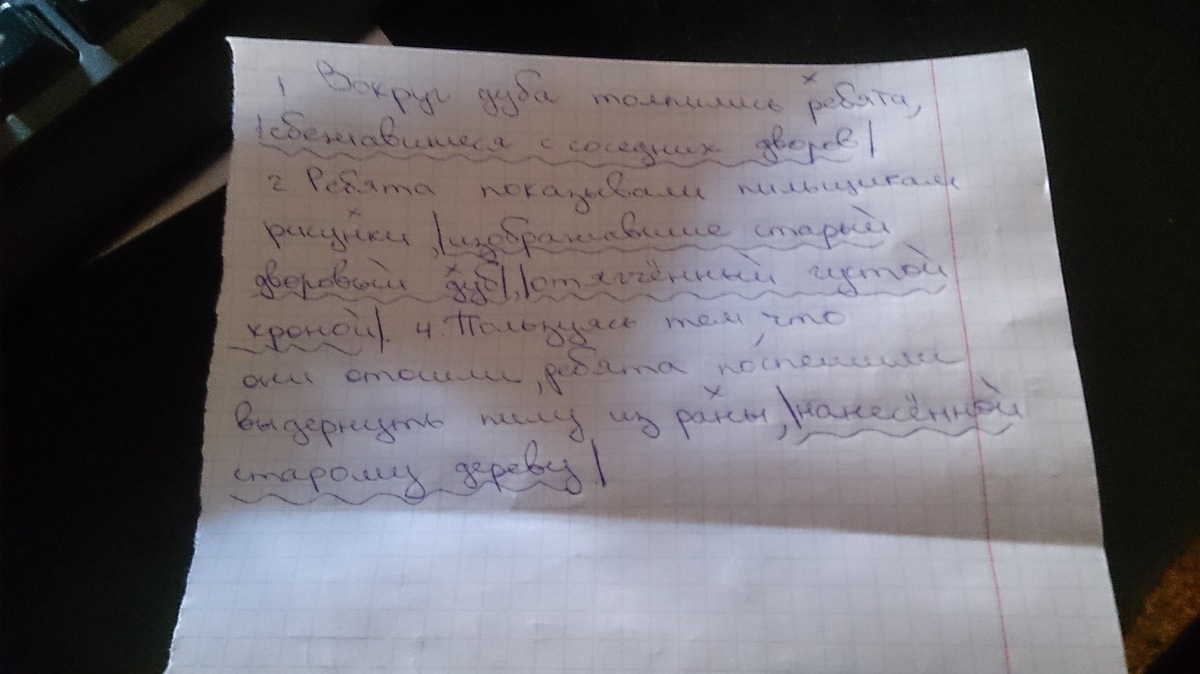 1 Вокруг дуба толпились ребята,
|сбежавшиеся с соседних дворов|
2. Ребята показывали пильщикам
рисунки,|изображавшие старый
дворовый дуб|,|отягчённый густой
кроной|. 4. Пользуясь тем, что
они отошли, ребята поспешили
выдернуть пилу из раны,|нанесённой
старому дереву|